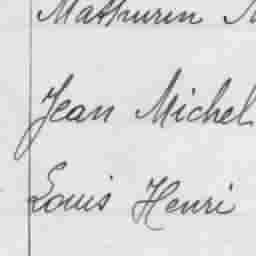 Mathurin
Jean Michel
Louis Henri